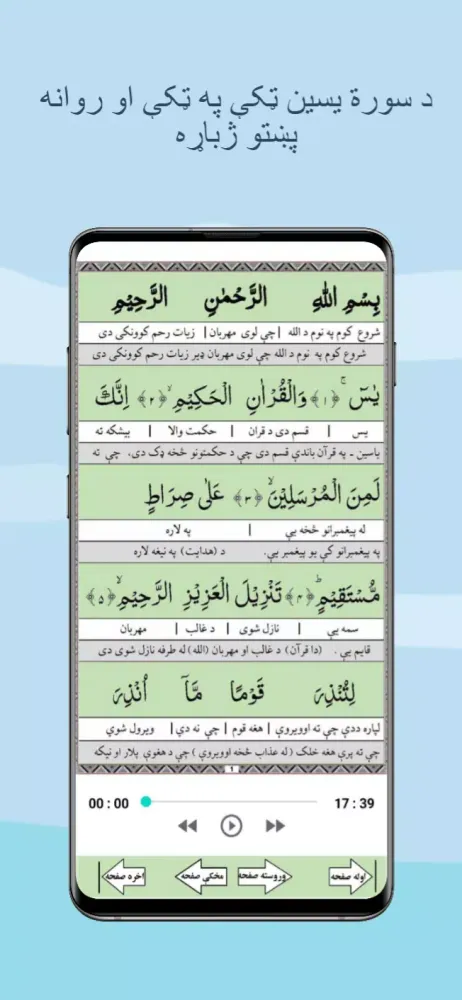 د سورة يسين ټکې په ټکې او روانه
پښتو ژباړه
بِسْمِ اللهِ الرَّحْمٰنِ الرَّحِيْمِ
شروع کوم په نوم د الله | چې لوی مهربان | زيات رحم کوونکی دی
شروع کوم په نوم د الله چې لوی مهربان ډير زيات رحم کوونکی دی
يٰسٓ ۚ ﴿١﴾ وَالْقُرْاٰنِ الْحَكِيْمِ ۙ ﴿٢﴾ اِنَّكَ
يس | قسم دی د قران | حکمت والا | بيشکه ته
ياسين - په قرآن باندې قسم دی چې د حکمتونو څخه ډک دی. چې ته
لَمِنَ الْمُرْسَلِيْنَ ۙ ﴿٣﴾ عَلٰى صِرَاطٍ
له پيغمبرانو څخه يې | په لاره
په پيغمبرانو کې يو پيغمبر يې. د (هدايت) په نيغه لاره
مُّسْتَقِيْمٍ ؕ ﴿٤﴾ تَنْزِيْلَ الْعَزِيْزِ الرَّحِيْمِ ۙ ﴿٥﴾
سمه يې | نازل شوی | د غالب | مهربان
قايم يې . (دا قرآن) د غالب او مهربان (الله) له طرفه نازل شوی دی
لِتُنْذِرَ قَوْمًا مَّاۤ اُنْذِرَ
لپاره ددې چې ته اوويروې | هغه قوم | چې نه دي | ويرول شوي
چې ته پرې هغه خلک (له عذاب څخه اوويروې) چې د هغوې پلار او نيکه
١
00 : 00 17 : 39
اوله صفحه وروسته صفحه مخکې صفحه اخره صفحه